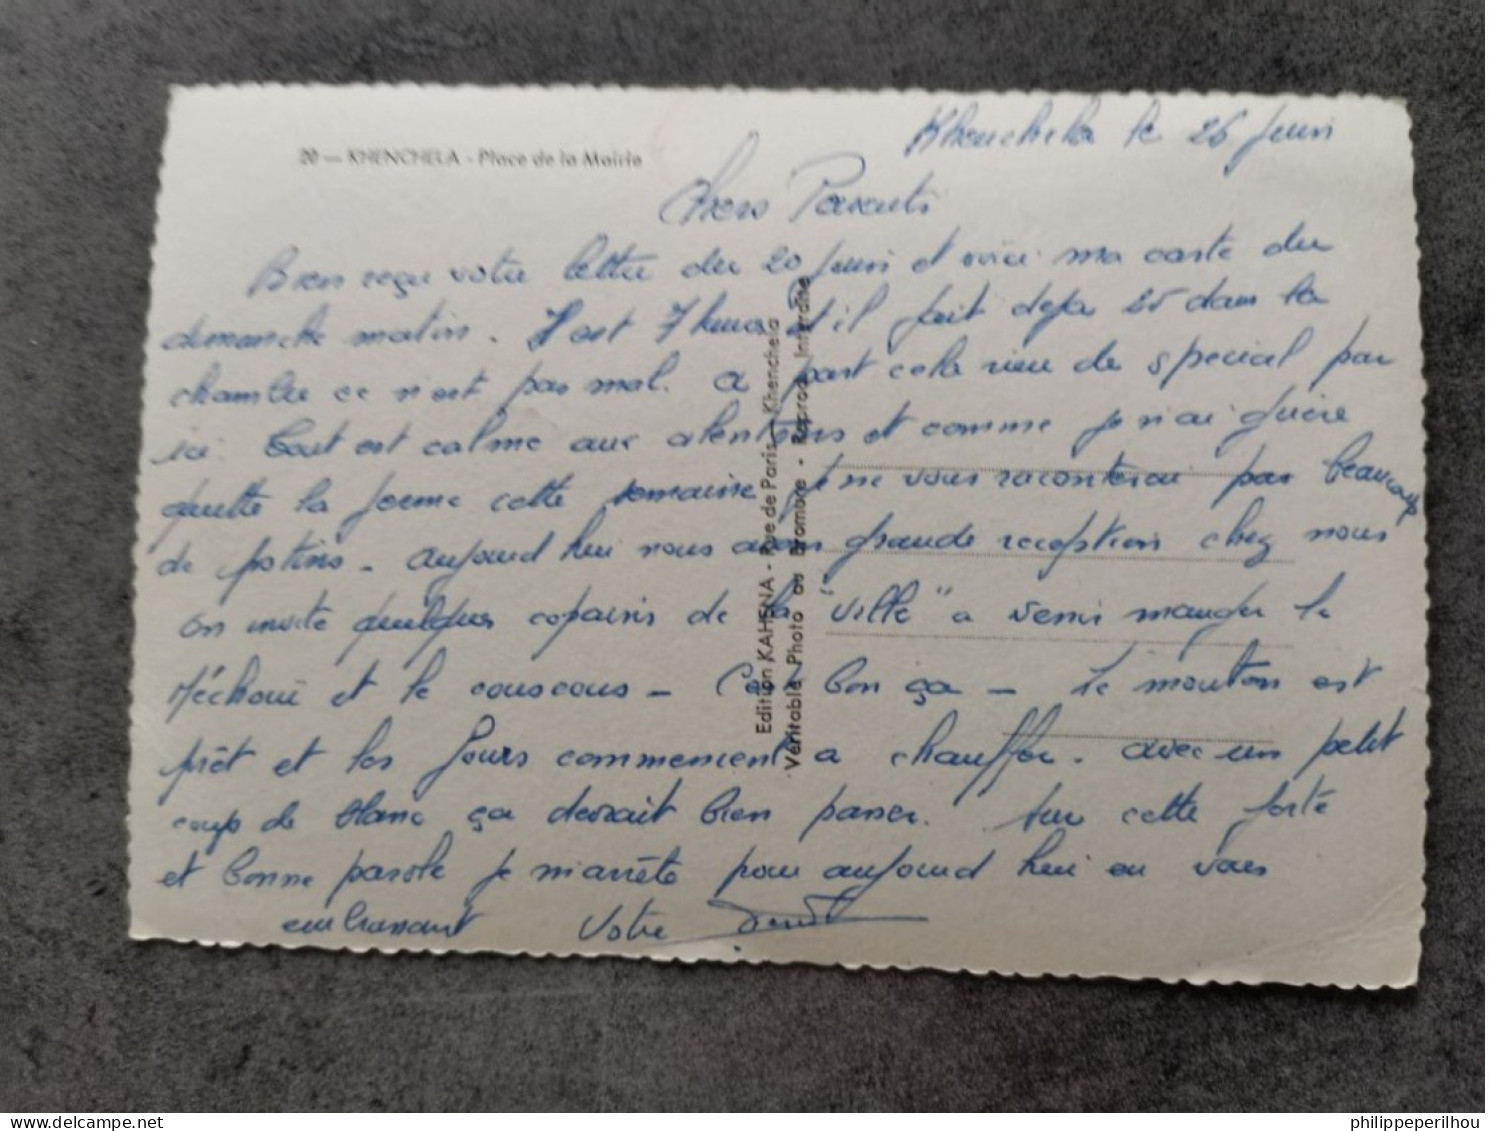 Khenchela le 26 Juin
20 — KHENCHELA - Place de la Mairie
Chers Parents
Bien reçu votre lettre du 20 Juin et voici ma carte du
dimanche matin. Il est 7 heures et il fait deja 25 dans la
chambre ce n'est pas mal. A part cela rien de special par
ici. Tout est calme aux alentours et comme je n'ai guère
quitté la ferme cette semaine je ne vous raconterai pas beaucoup
de potins - aujourd'hui nous avons grande reception chez nous
on invite quelques copains de la "ville" a venir manger le
Méchoui et le couscous - C'est bon ça - Le mouton est
prêt et les fours commencent a chauffer. avec un petit
coup de blanc ça devrait bien passer. Sur cette forte
et bonne parole je m'arrête pour aujourd'hui en vous
embrassant Votre
Edition KAHENA - Rue de Paris - Khenchela
Véritable Photo au Bromure - Reprod. Interdite
philippeperilhou